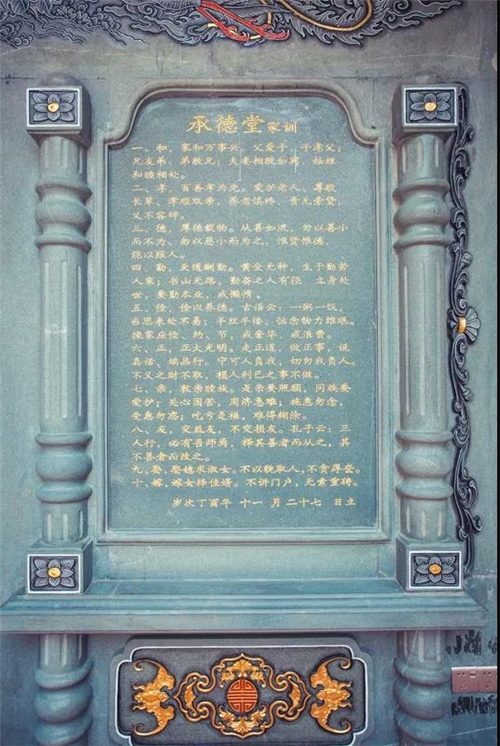 承德堂家训
一、和，家和万事兴。父爱子，子孝父；
兄友弟，弟敬兄；夫妻相敬如宾，妯娌
和睦相处。
二、孝，百善孝为先。爱护老人，尊敬
长辈，孝顺双亲，养老慎终，责无旁贷，
义不容辞。
三、德，厚德载物。从善如流，勿以善小
而不为，勿以恶小而为之，惟贤惟德，
能以服人。
四、勤，天道酬勤。黄金无种，生于勤劳
人家；书山无路，勤奋之人有径  立身处
世，要勤本业，戒懒惰。
五、俭，俭以养德。古语云：一粥一饭，
当思来处不易；半丝半缕，恒念物力维艰。
操家应俭、约、节，戒奢华、戒浪费。
六、正，正大光明。走正道，做正事，说
真话，端品行。宁可人负我，切勿我负人。
不义之财不取，损人利己之事不做。
七、亲，敦亲睦族。是亲要照顾，同族要
爱护；关心困苦，周济急难；施惠勿念，
受惠勿忘；吃亏是福，难得糊涂。
八、友，交益友，不交损友。孔子云：三
人行，必有吾师焉，择其善者而从之，其
不善者而改之。
九、娶，娶媳求淑女。不以貌取人，不贪厚奁。
十、嫁，嫁女择佳婿。不讲门户，无索重聘。
岁次丁酉年 十一月二十七 日立